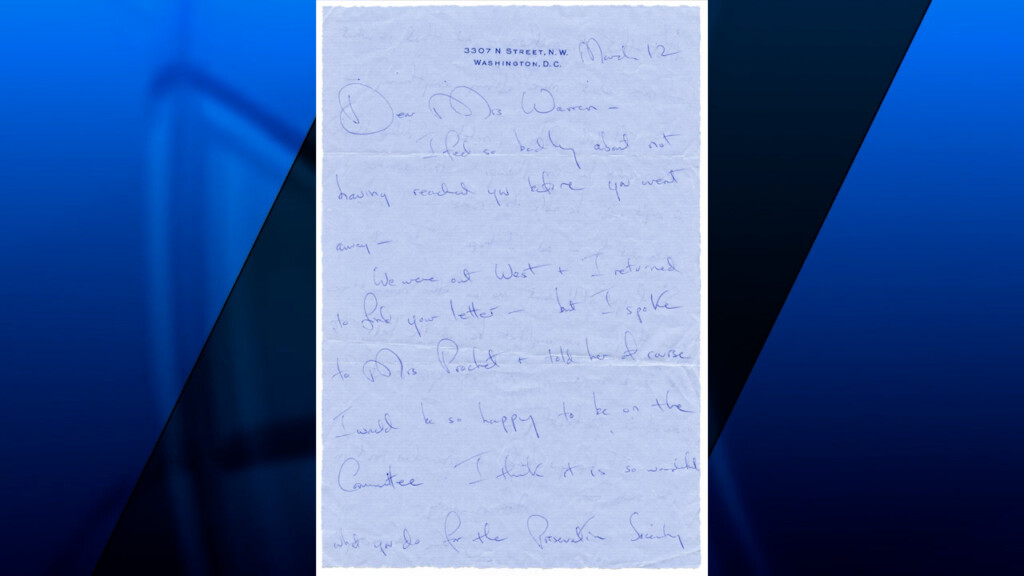 3307 N STREET, N.W.
WASHINGTON, D.C.
March 12
Dear Mrs Warren —
I feel so badly about not
having reached you before you went
away —
We were out West + I returned
to find your letter — but I spoke
to Mrs + told her of course
I would be so happy to be on the
Committee I think it is so wonderful
what you do for the Preservation Society